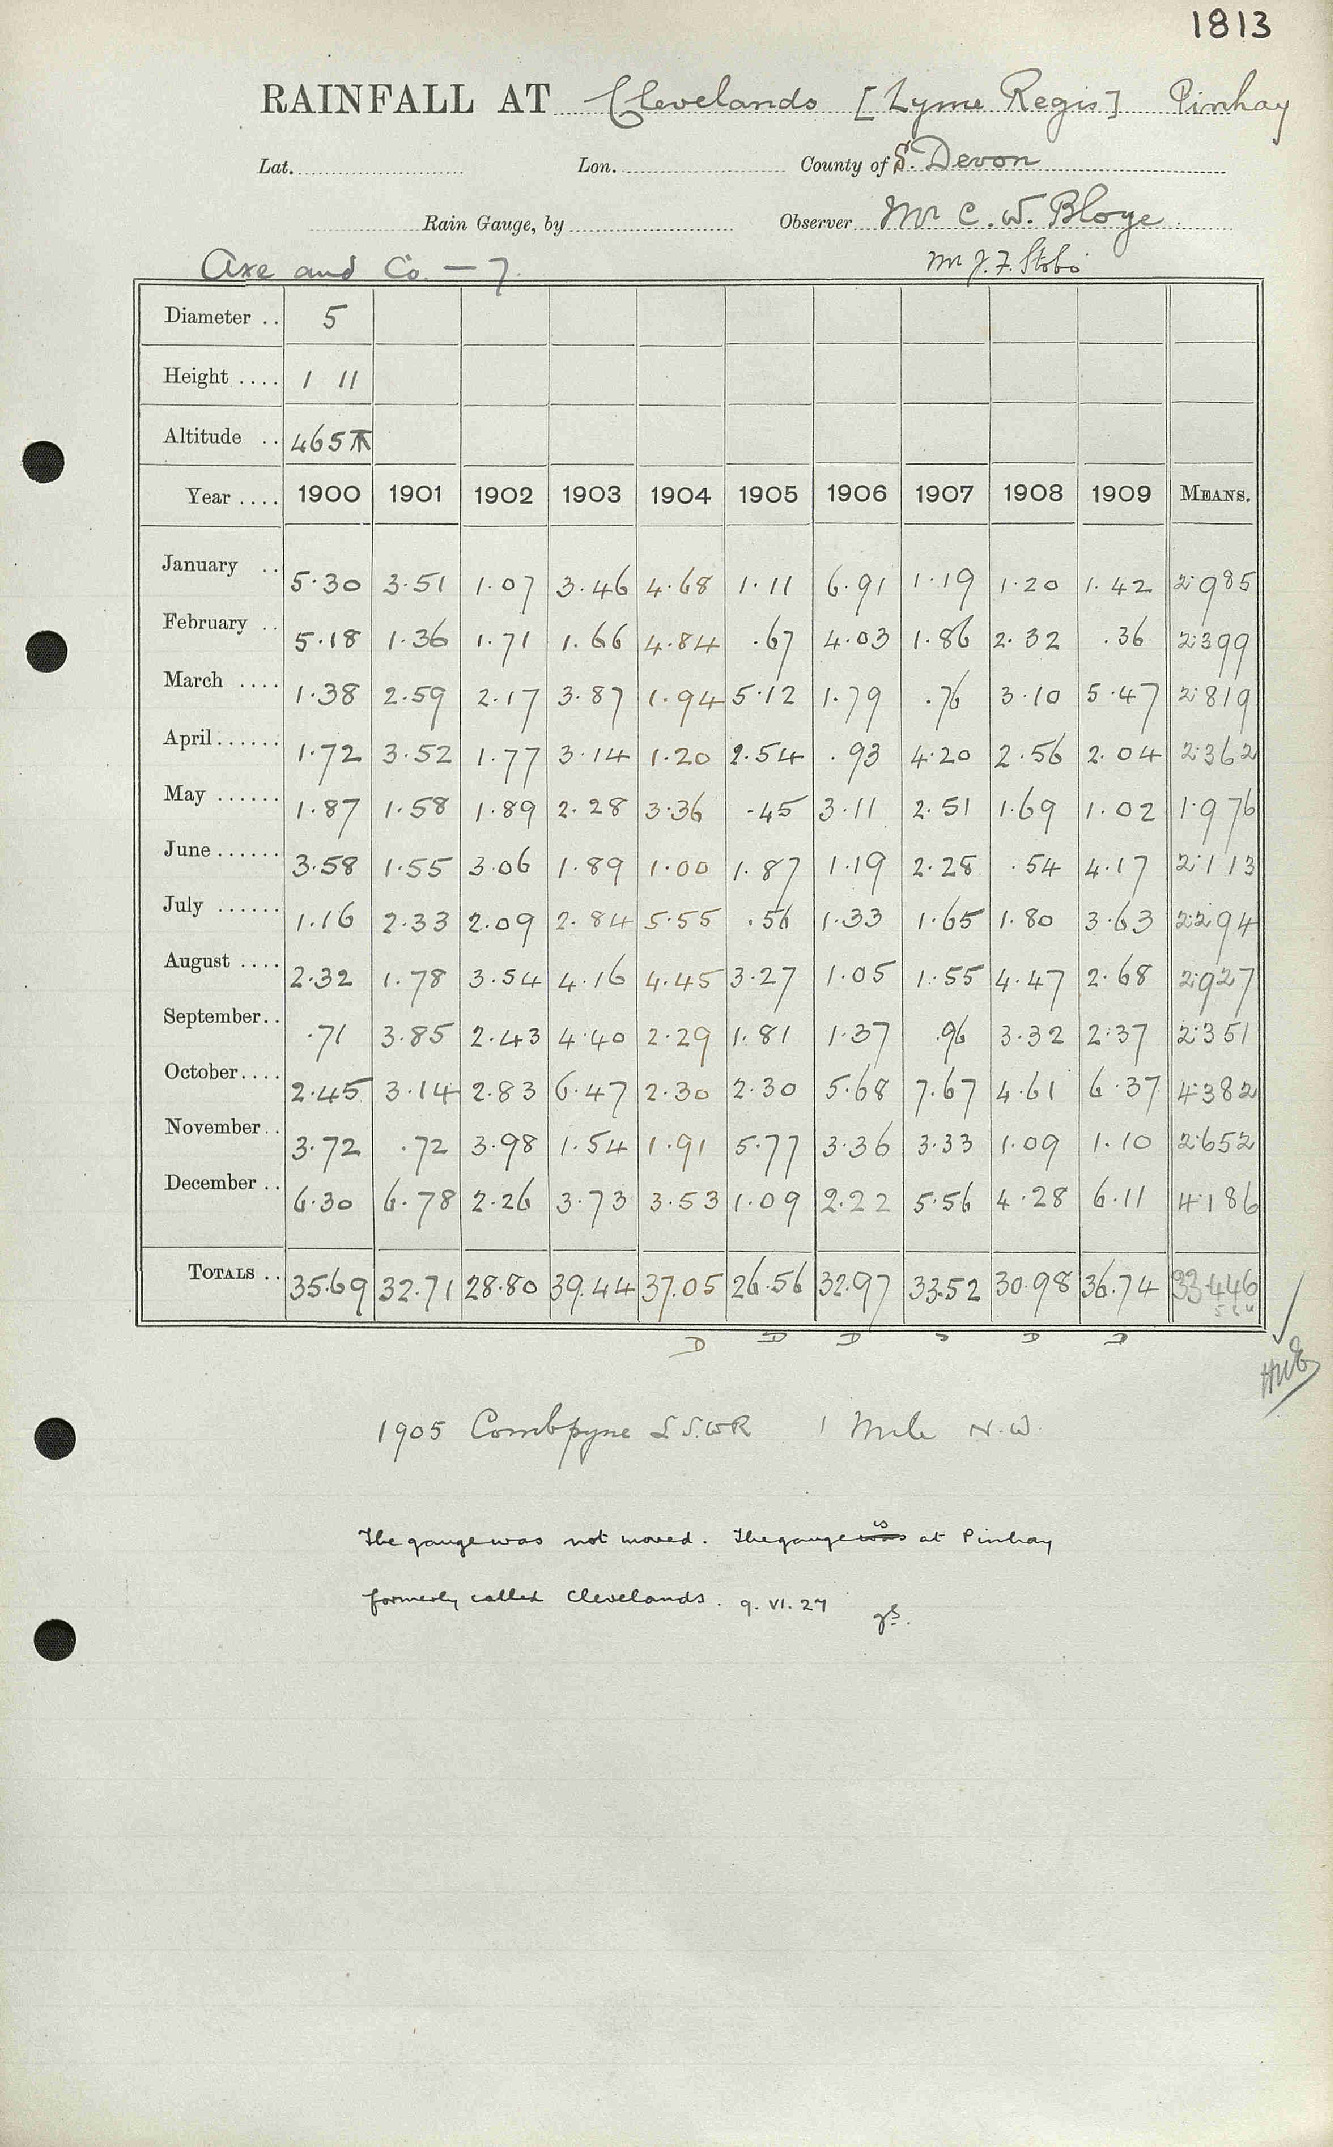 1813
RAINFALL AT Clevelands [Lyme Regis] Pinhay
Lat. Lon. County of S. Devon
Rain Gauge, by Observer Mr C. W. Bloye
Axe and Co. — 7. Mr J. F. Stobo
Diameter .. 5
Height .... 1 11
Altitude .. 465
Year .... 1900 1901 1902 1903 1904 1905 1906 1907 1908 1909 MEANS.
January .. 5.30 3.51 1.07 3.46 4.68 1.11 6.91 1.19 1.20 1.42 2.985
February .. 5.18 1.36 1.71 1.66 4.84 .67 4.03 1.86 2.32 .36 2.399
March .... 1.38 2.59 2.17 3.87 1.94 5.12 1.79 .76 3.10 5.47 2.819
April...... 1.72 3.52 1.77 3.14 1.20 2.54 .93 4.20 2.56 2.04 2.362
May ...... 1.87 1.58 1.89 2.28 3.36 .45 3.11 2.51 1.69 1.02 1.976
June...... 3.58 1.55 3.06 1.89 1.00 1.87 1.19 2.28 .54 4.17 2.113
July ...... 1.16 2.33 2.09 2.84 5.55 .56 1.33 1.65 1.80 3.63 2.294
August .... 2.32 1.78 3.54 4.16 4.45 3.27 1.05 1.55 4.47 2.68 2.927
September.. .71 3.85 2.43 4.40 2.29 1.81 1.37 .96 3.32 2.37 2.351
October.... 2.45 3.14 2.83 6.47 2.30 2.30 5.68 7.67 4.61 6.37 4.382
November.. 3.72 .72 3.98 1.54 1.91 5.77 3.36 3.33 1.09 1.10 2.652
December .. 6.30 6.78 2.26 3.73 3.53 1.09 2.22 5.56 4.28 6.11 4.186
TOTALS .. 35.69 32.71 28.80 39.44 37.05 26.56 32.97 33.52 30.98 36.74 33.446
D D D s D D
1905 Combpyne L.S.W.R 1 Mile N.W.
The gauge was not moved. The gauge was is at Pinhay
formerly called Clevelands. 9.VI.27